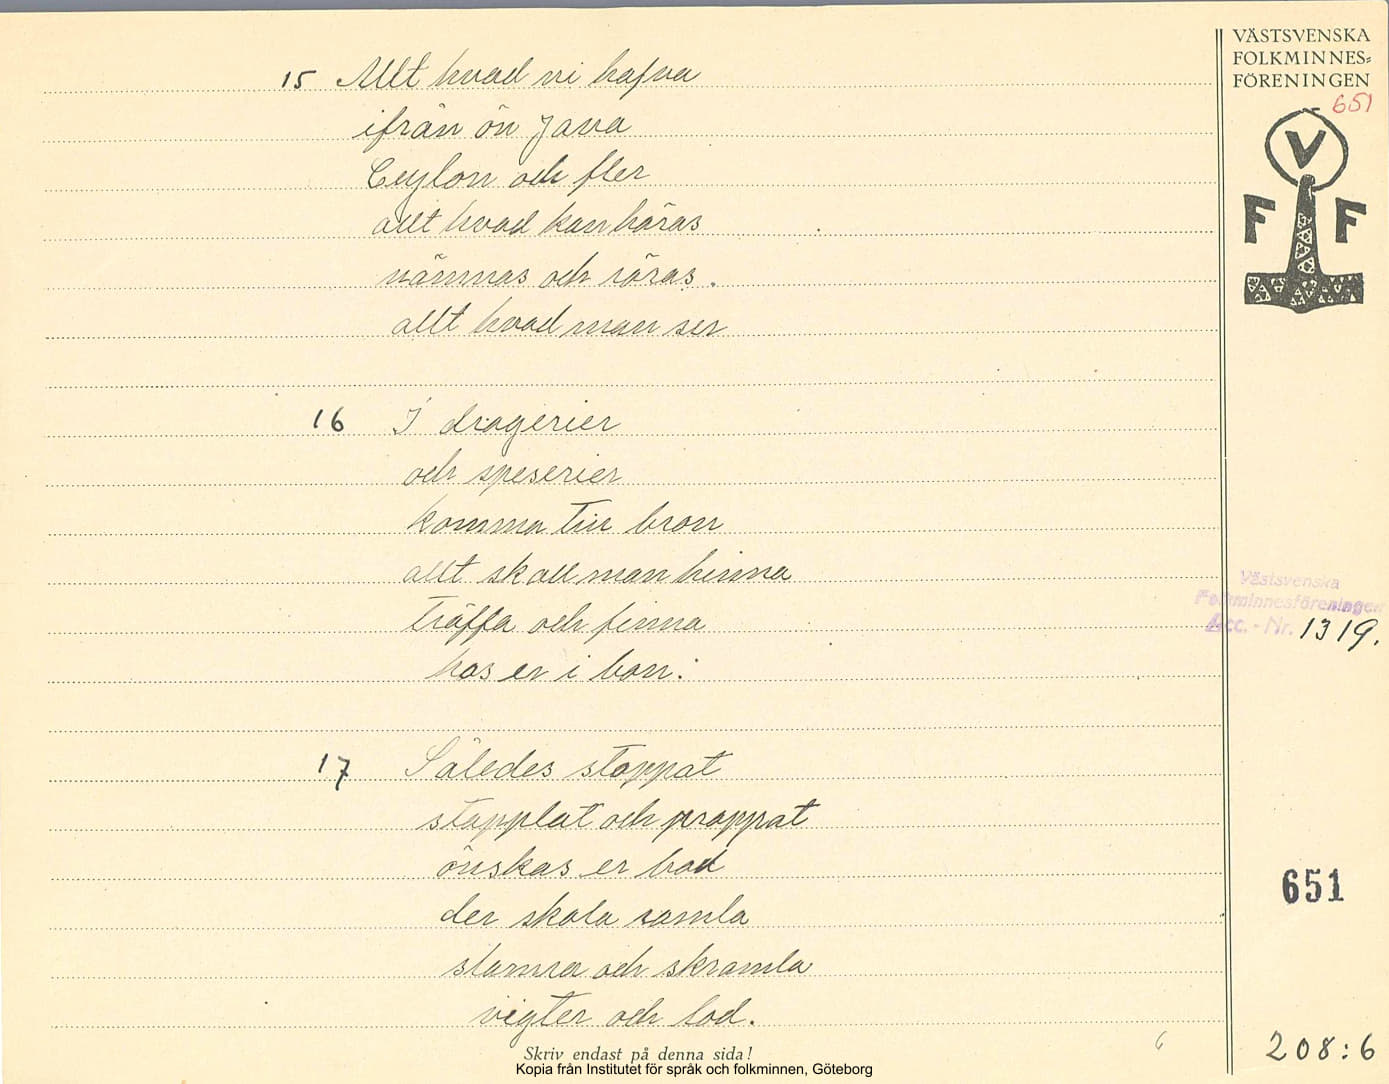 VÄSTSVENSKA
FOLKMINNES-
FÖRENINGEN
651
V
F F
15 Allt hvad vi hafva
ifrån ön Java
Ceylon och fler
allt hvad kan höras
nämnas och röras.
allt hvad man ser
16 I dragerier
och speserier
komma till bron
allt skall man hinna
träffa och finna
hos er i bon.
Västsvenska
Folkminnesföreningen
Acc. - Nr. 1319.
17 Således stoppat
stapplat och proppat
önskas er bod
der skola ramla
slamra och skramla
vigter och lod.
651
6
208:6
Skriv endast på denna sida!
Kopia från Institutet för språk och folkminnen, Göteborg